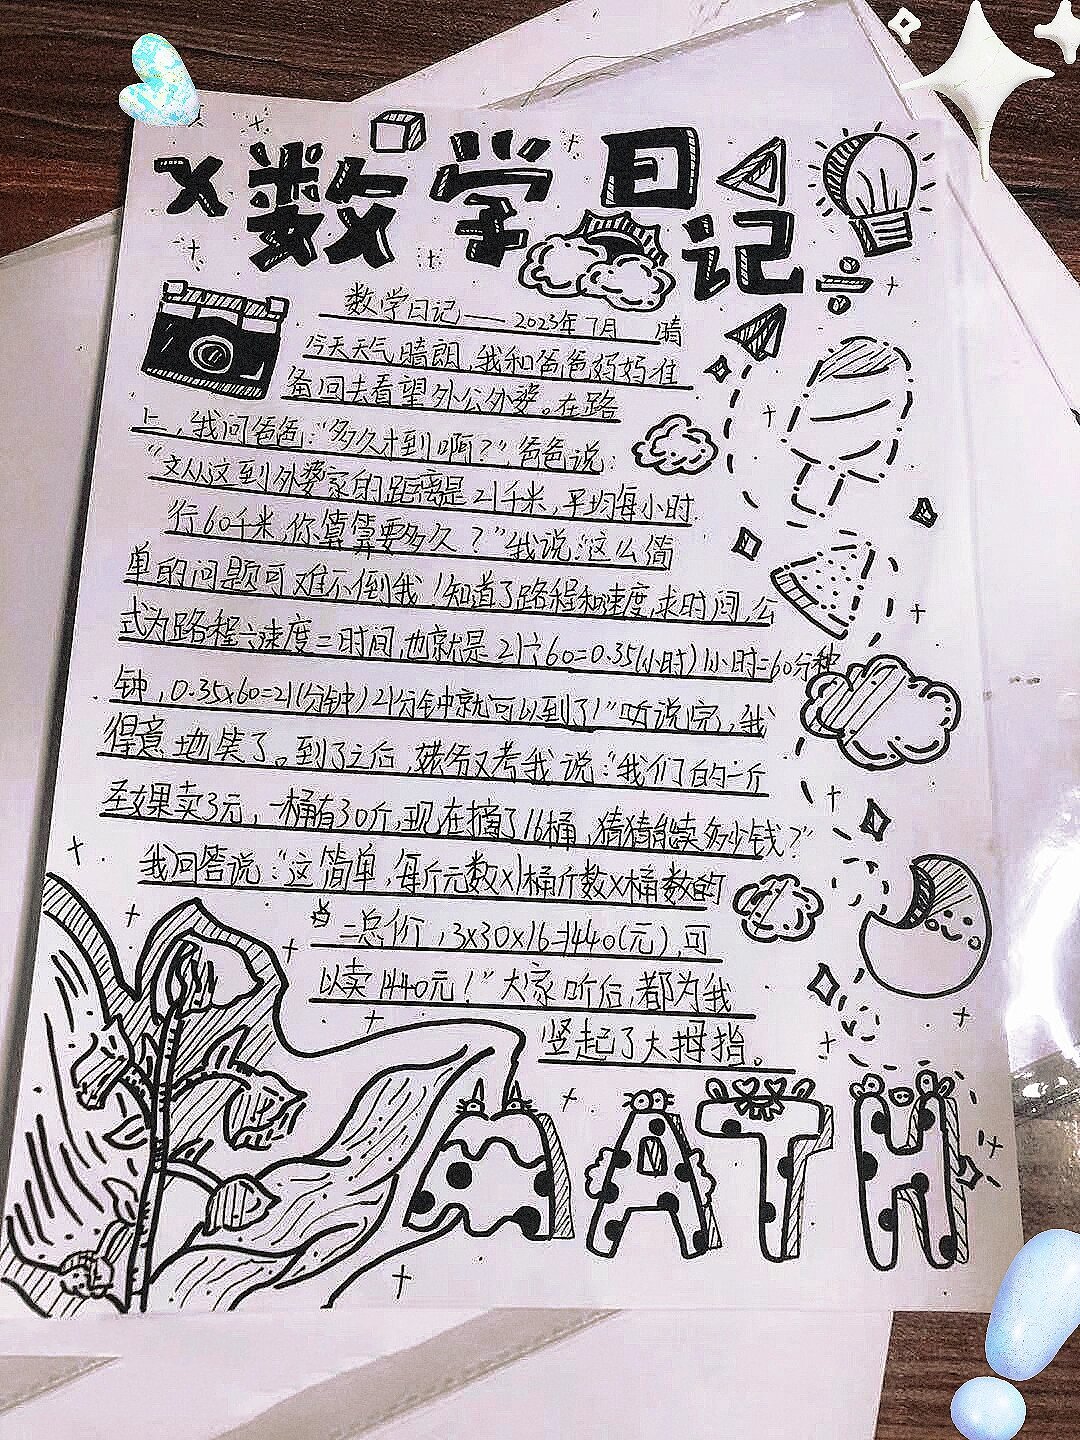 ×数学日记÷
数学日记——2023年7月 晴
今天天气晴朗,我和爸爸妈妈准
备回去看望外公外婆。在路
上,我问爸爸:"多久才到啊?",爸爸说:
"从这到外婆家的距离是21千米,平均每小时
行60千米,你算算要多久?"我说:"这么简
单的问题可难不倒我!知道了路程和速度,求时间,公
式为路程÷速度=时间,也就是21÷60=0.35(小时)1小时=60分种
钟,0.35×60=21(分钟)21分钟就可以到了!"听说完,我
得意地笑了。到了之后,姥爷又考我说:"我们的一斤
圣女果卖3元,一桶有30斤,现在摘了16桶,猜猜能卖多少钱?"
我回答说:"这简单,每斤元数×1桶斤数×桶数的
=总价,3×30×16=1440(元),可
以卖1440元!"大家听后,都为我
竖起了大拇指。
MATH